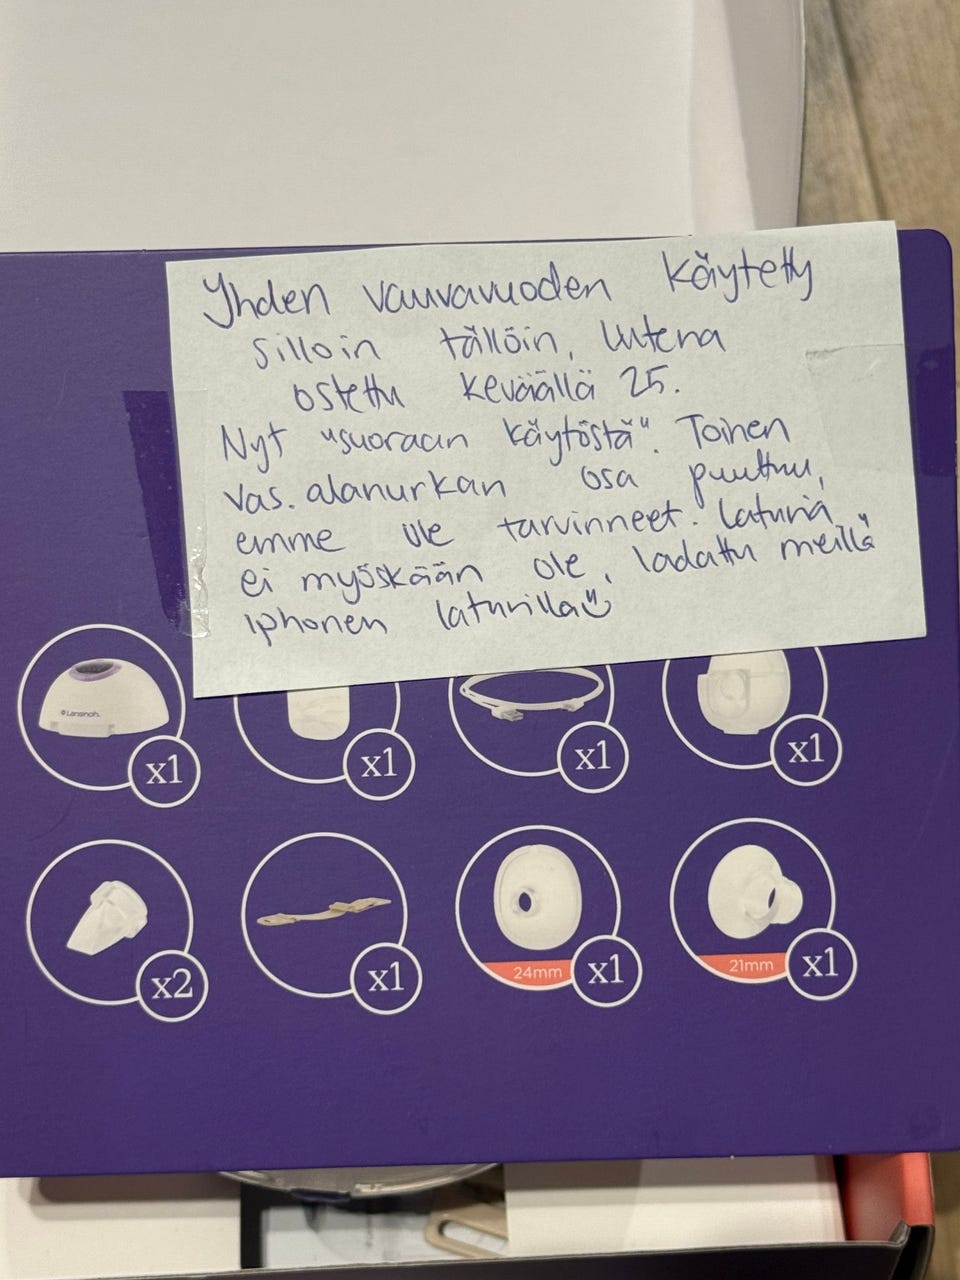 Yhden vauvavuoden käytetty
silloin tällöin, uutena
ostettu keväällä 25.
Nyt "suoraan käytöstä". Toinen
vas. alanurkan osa puuttuu,
emme ole tarvinneet. Laturia
ei myöskään ole, ladattu meillä
iphonen laturilla
Lansinoh
x1
x1
x1
x1
x2
x1
24mm
x1
21mm
x1